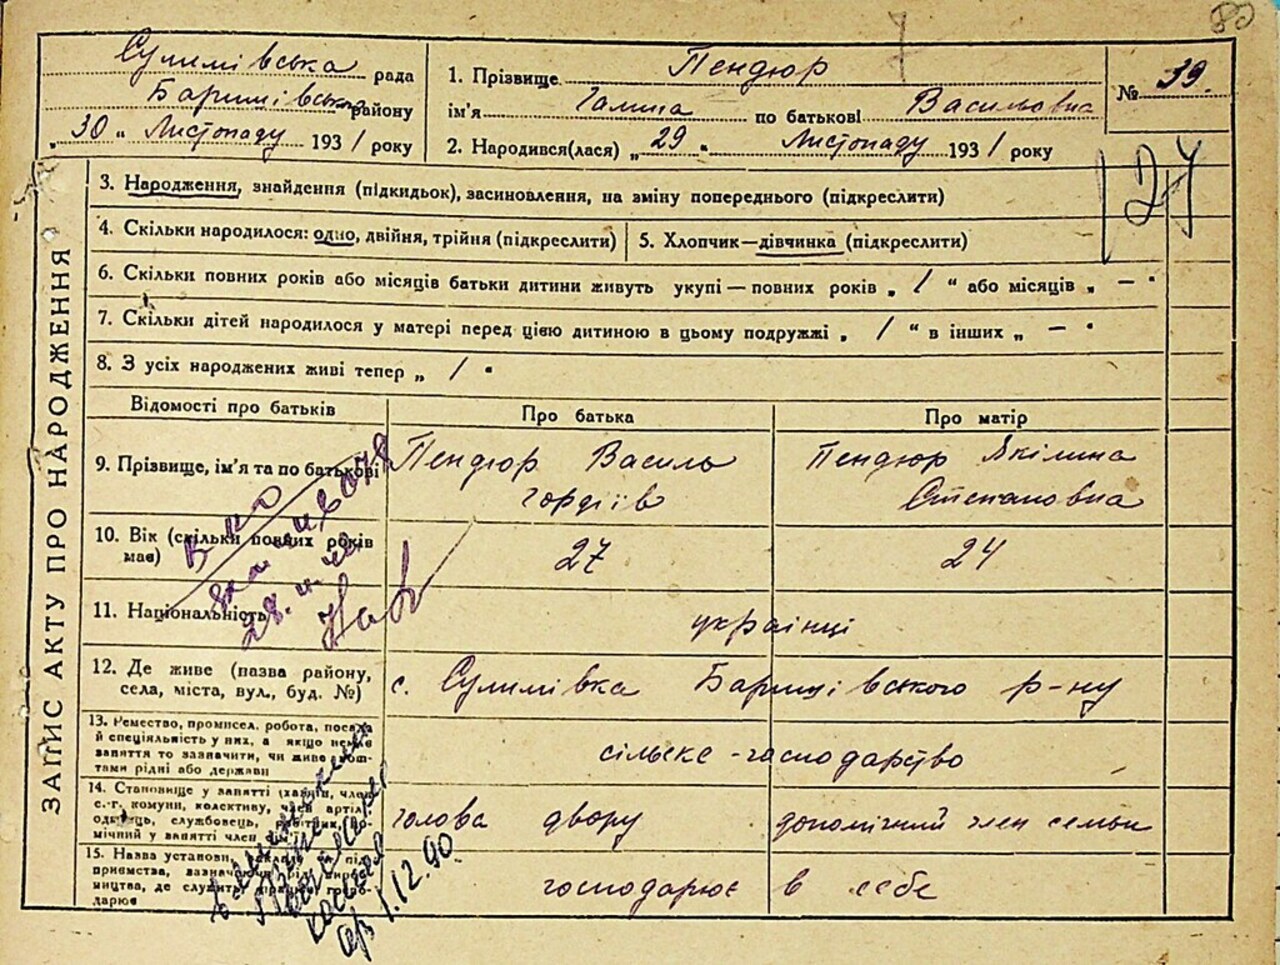 Сулимівська рада
Баришівська району
„30" Листопаду 1931 року
1. Прізвище Пендюр
ім'я Галина по батькові Васильовна
2. Народився(лася) „29" Листопаду 1931 року
№ 39.
127
ЗАПИС АКТУ ПРО НАРОДЖЕННЯ
3. Народження, знайдення (підкидьок), засиновлення, на зміну попереднього (підкреслити)
4. Скільки народилося: одно, двійня, трійня (підкреслити)
5. Хлопчик—дівчинка (підкреслити)
6. Скільки повних років або місяців батьки дитини живуть укупі — повних років „ 1 " або місяців „ — "
7. Скільки дітей народилося у матері перед цією дитиною в цьому подружжі „ 1 " в інших „ — "
8. З усіх народжених живі тепер „ 1 "
Відомості про батьків
Про батька
Про матір
9. Прізвище, ім'я та по батькові
Пендюр Василь
Гордіїв
Пендюр Якілина
Степановна
10. Вік (скільки повних років
має)
27
24
11. Національність
українці
12. Де живе (назва району,
села, міста, вул., буд. №)
с. Сулимівка Баришівського р-ну
13. Ремество, промисел, робота, посада
й спеціяльність у них, а якщо немає
заняття то зазначити, чи живе кош-
тами рідні або держави
сільске-господарство
14. Становище у занятті (хазяїн, член
с.-г. комуни, колективу, член артілі,
одинець, службовець, робітник, до-
мічний у занятті член сем'ї)
голова двору
допомічний член семьи
15. Назва установи,
приємства,
мництва, де служить,
дарює
господарює в себе
28.
1.12.90.